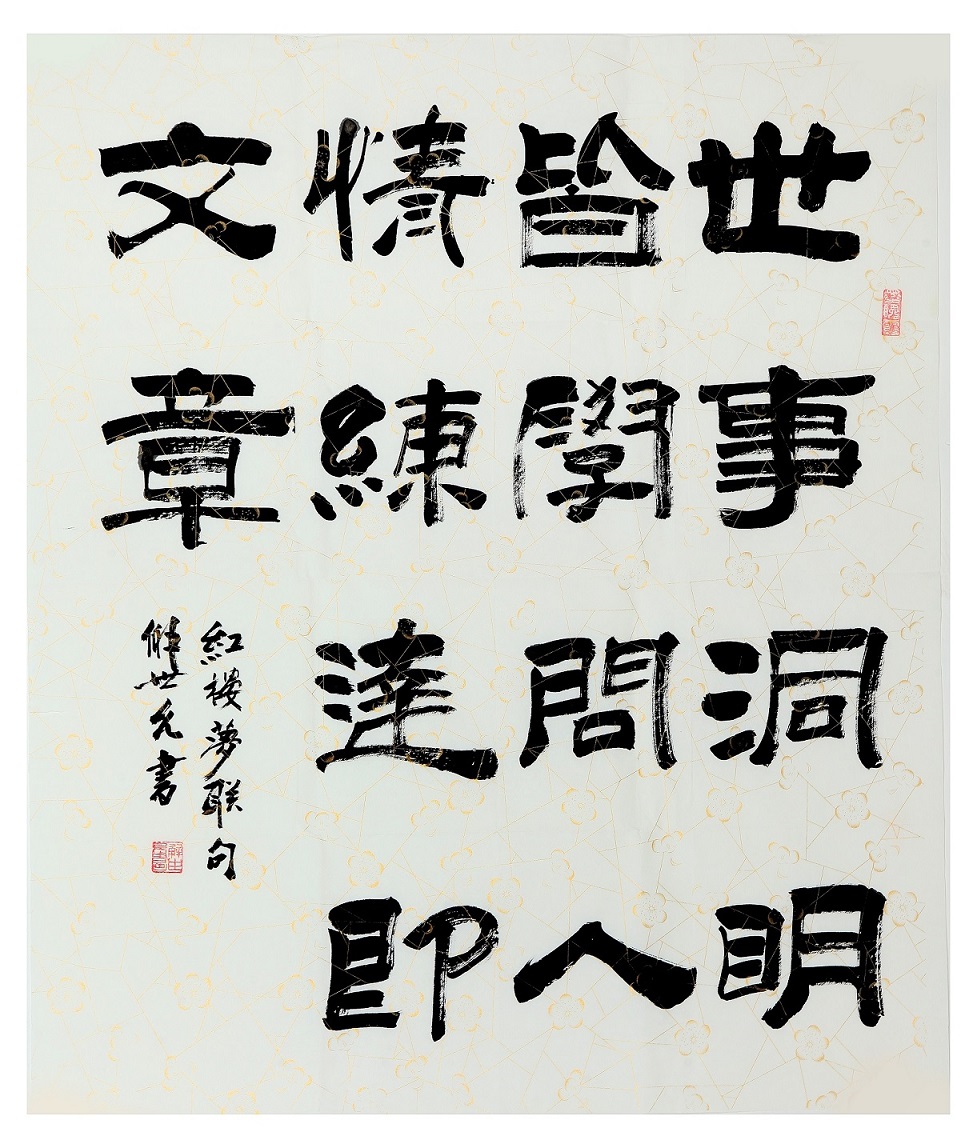 世事洞眀
皆學問人
情練達即
文章
紅楼夢联句
解世書